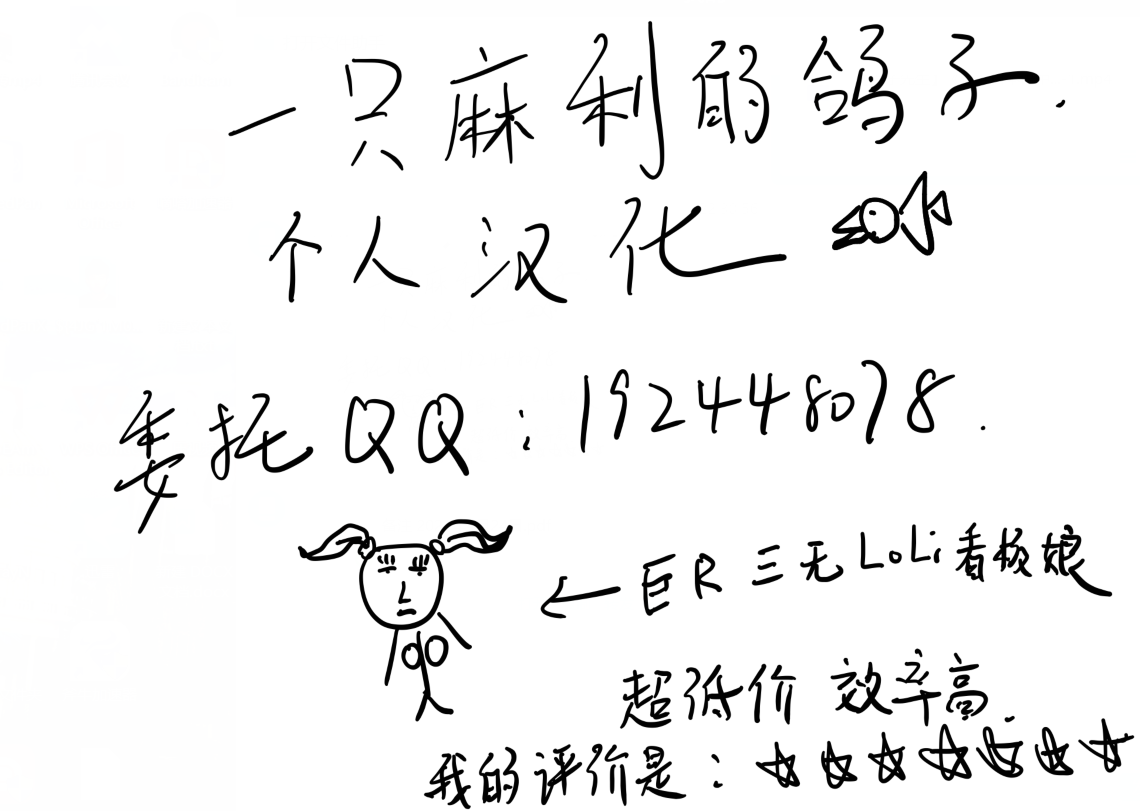 一只麻利的鸽子.
个人汉化
委托QQ:192448078.
←ER三无LoLi看板娘
超低价 效率高.
我的评价是:☆☆☆☆☆☆☆